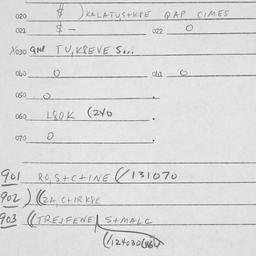 020 $ ) KALATUS+KRE QAP CIMES
021 $ - 022 0
X030 QAP TU,KREVE S...
040 0 041 0
050 0
060 L80K (240
070 0
901 80,S+C+INE (/131070
902 ) ((ZA,C+IRKRE
903 ((TRESFENE) S+MALC